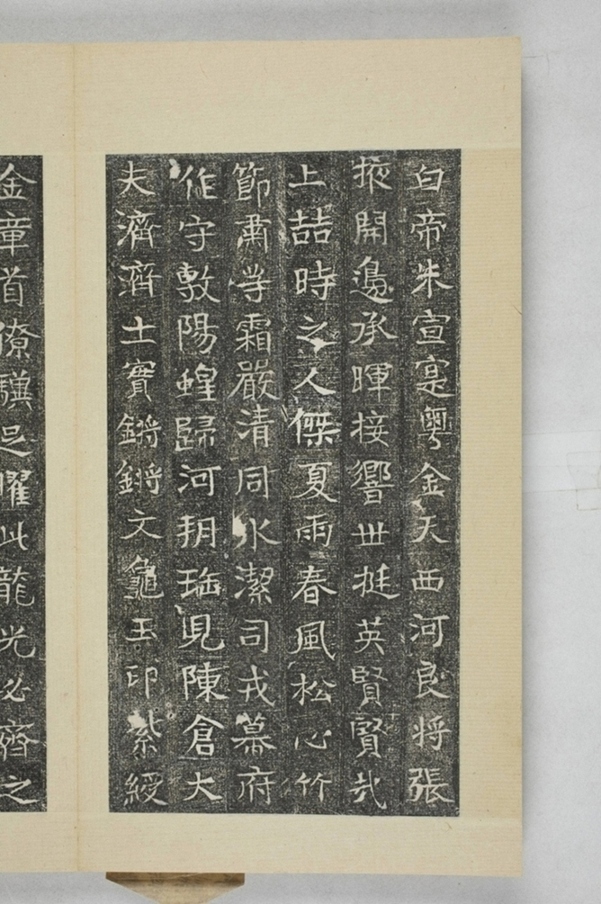 白帝朱宣寔粤金天西河良将張
掖開邊承暉接響世挺英賢賢哉
上喆時之人傑夏雨春風松心竹
節肅學霜嚴清同水潔司戎幕府
作守敷陽蝗歸河朔珤見陳倉大
夫濟濟士實鏘鏘文龜玉印紫綬
金章首僚驥足曜此龍光必齊之